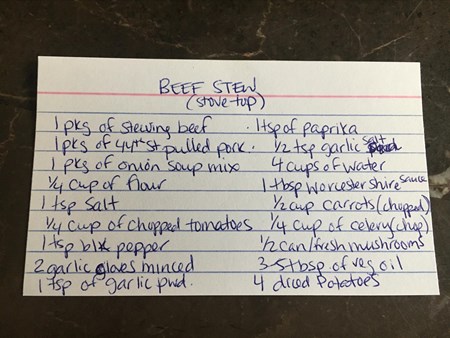 BEEF STEW
(stove-top)
1 pkg of stewing beef
1 pkg of 44th st pulled pork
1 pkg of onion soup mix
1/4 cup of flour
1 tsp salt
1/4 cup of chopped tomatoes
1 tsp blk pepper
2 garlic gloves minced
1 tsp of garlic pwd.
1 tsp of paprika
1/2 tsp garlic salt
4 cups of water
1 tbsp Worcestershire sauce
1/2 cup carrots (chopped)
1/4 cup of celery (chop)
1/2 can/fresh mushrooms
3-5 tbsp of veg oil
4 diced Potatoes